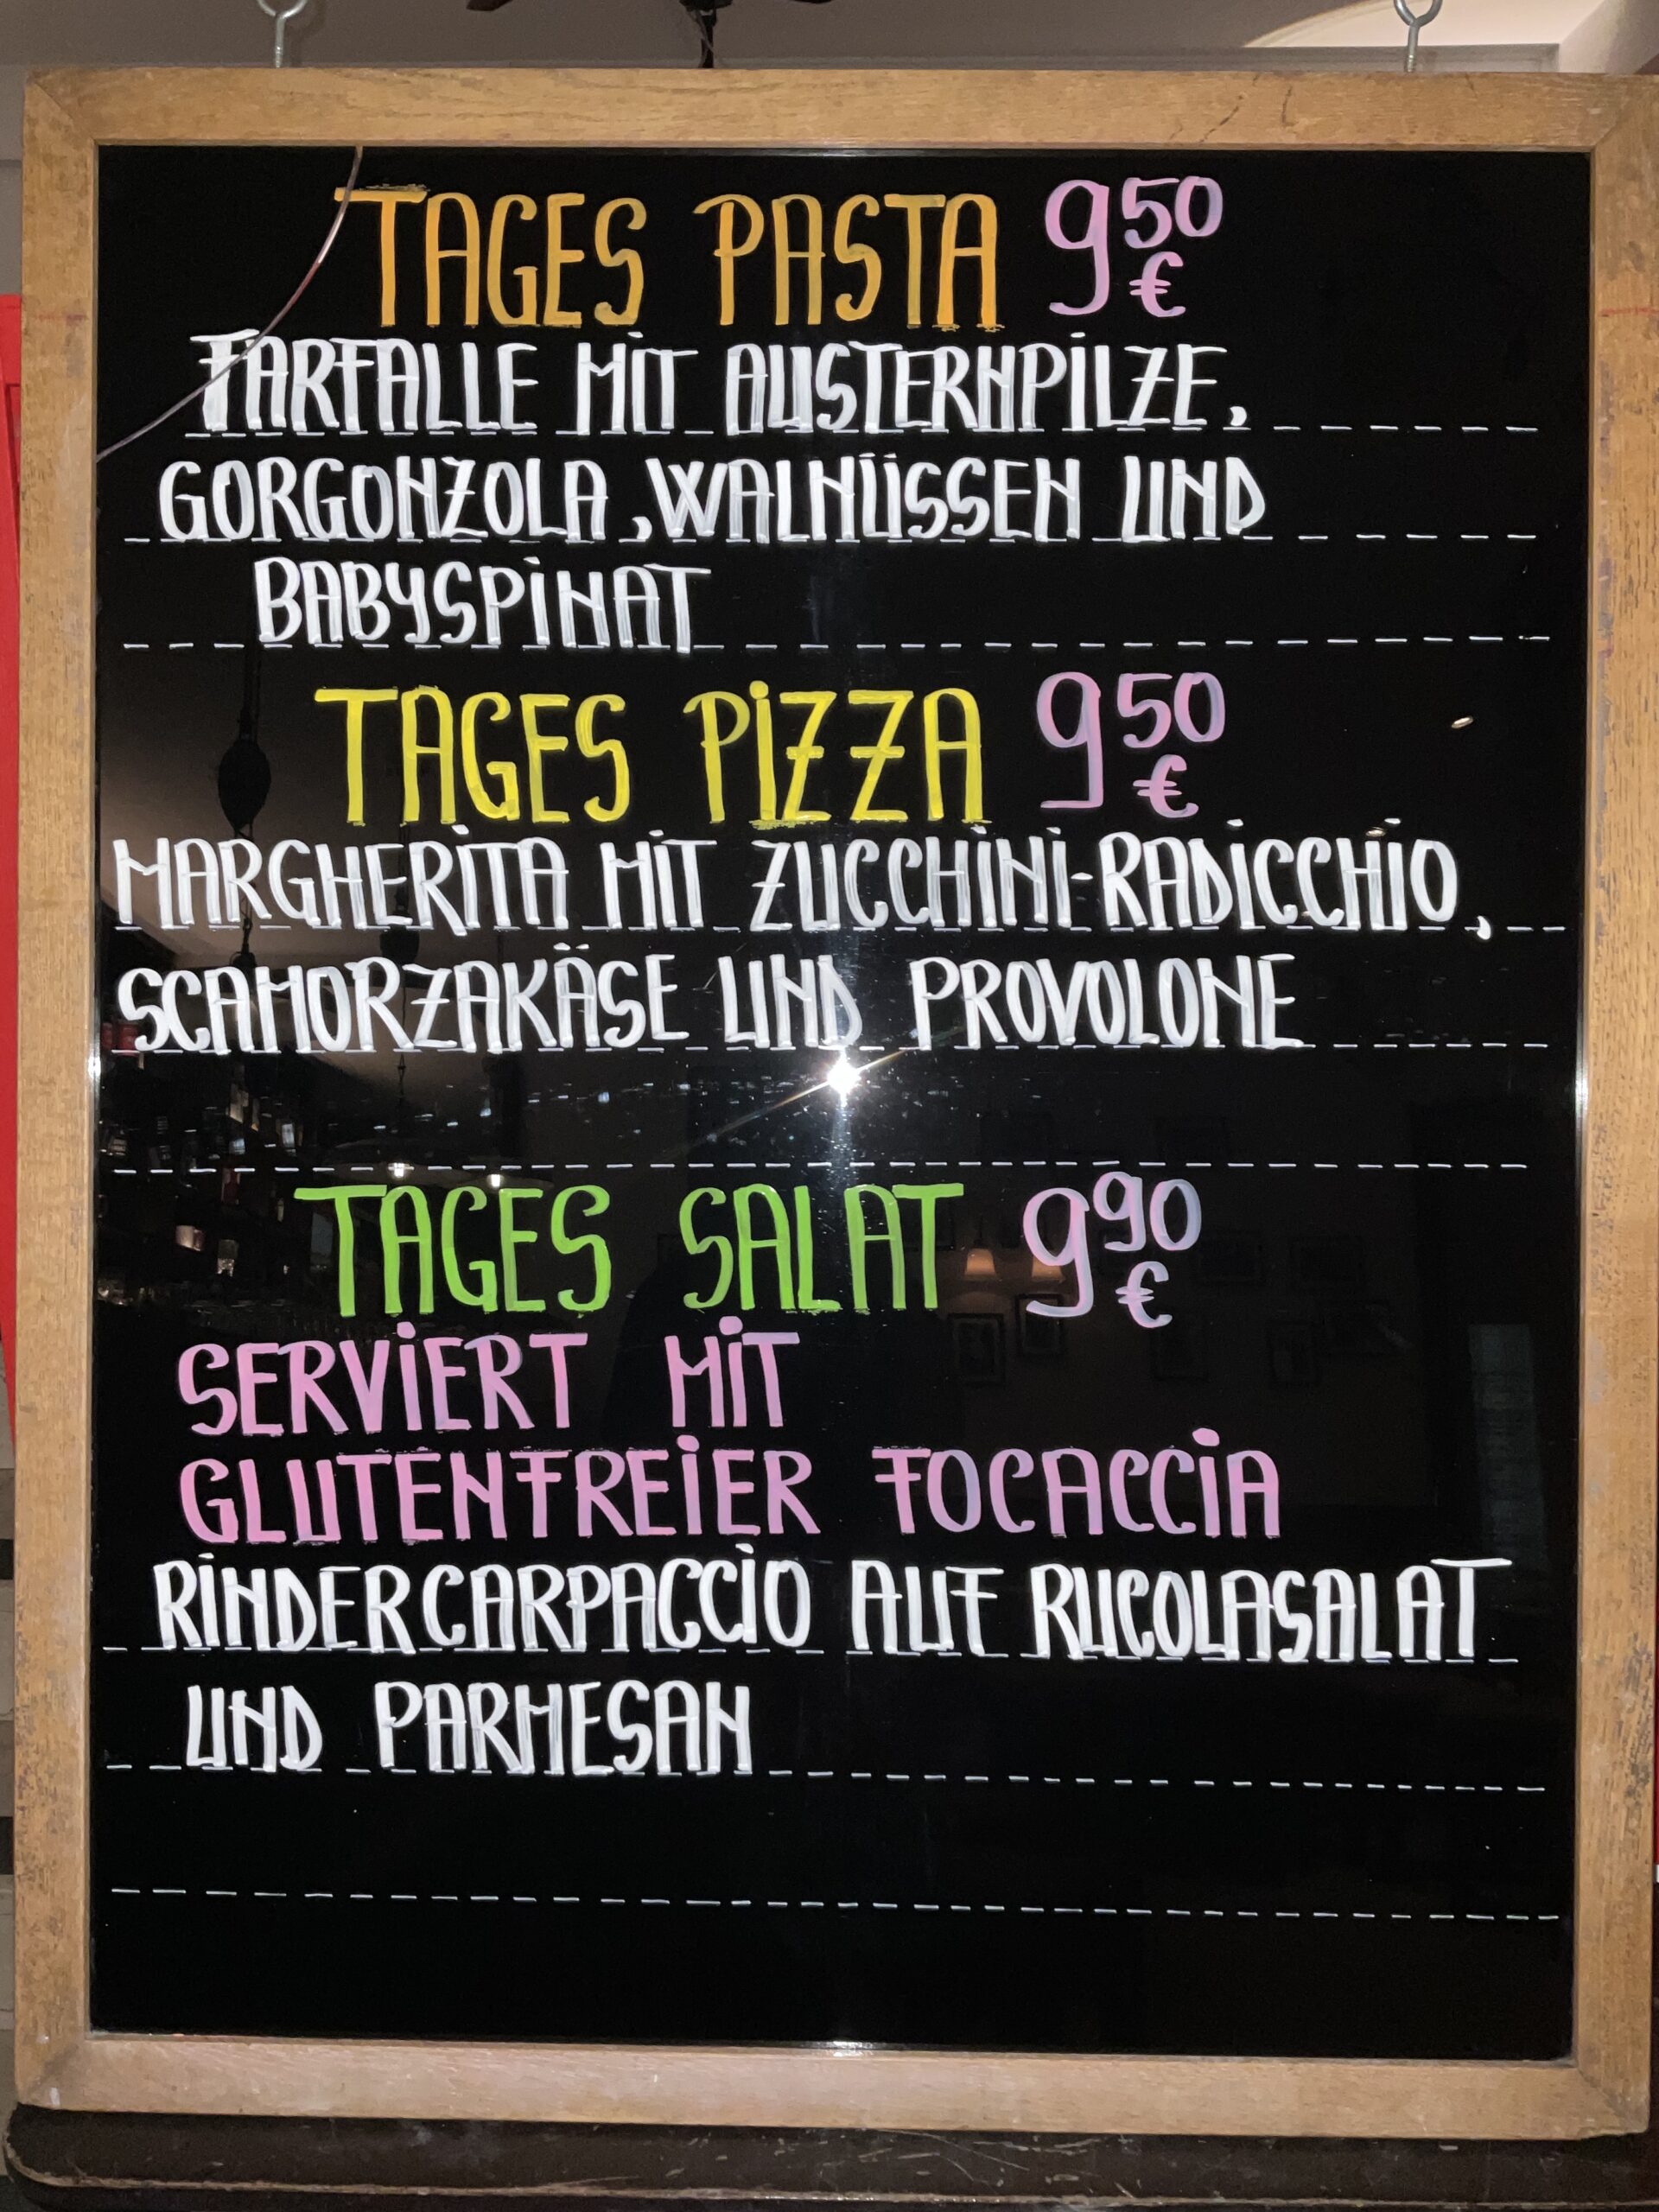 TAGES PASTA 9 50 €
FARFALLE MIT AUSTERNPILZE,
GORGONZOLA, WALNÜSSEN UND
BABYSPINAT
TAGES PIZZA 9 50 €
MARGHERITA MIT ZUCCHINI-RADICCHIO,
SCAMORZAKÄSE UND PROVOLONE
TAGES SALAT 9 90 €
SERVIERT MIT
GLUTENFREIER FOCACCIA
RINDERCARPACCIO AUF RUCOLASALAT
UND PARMESAN